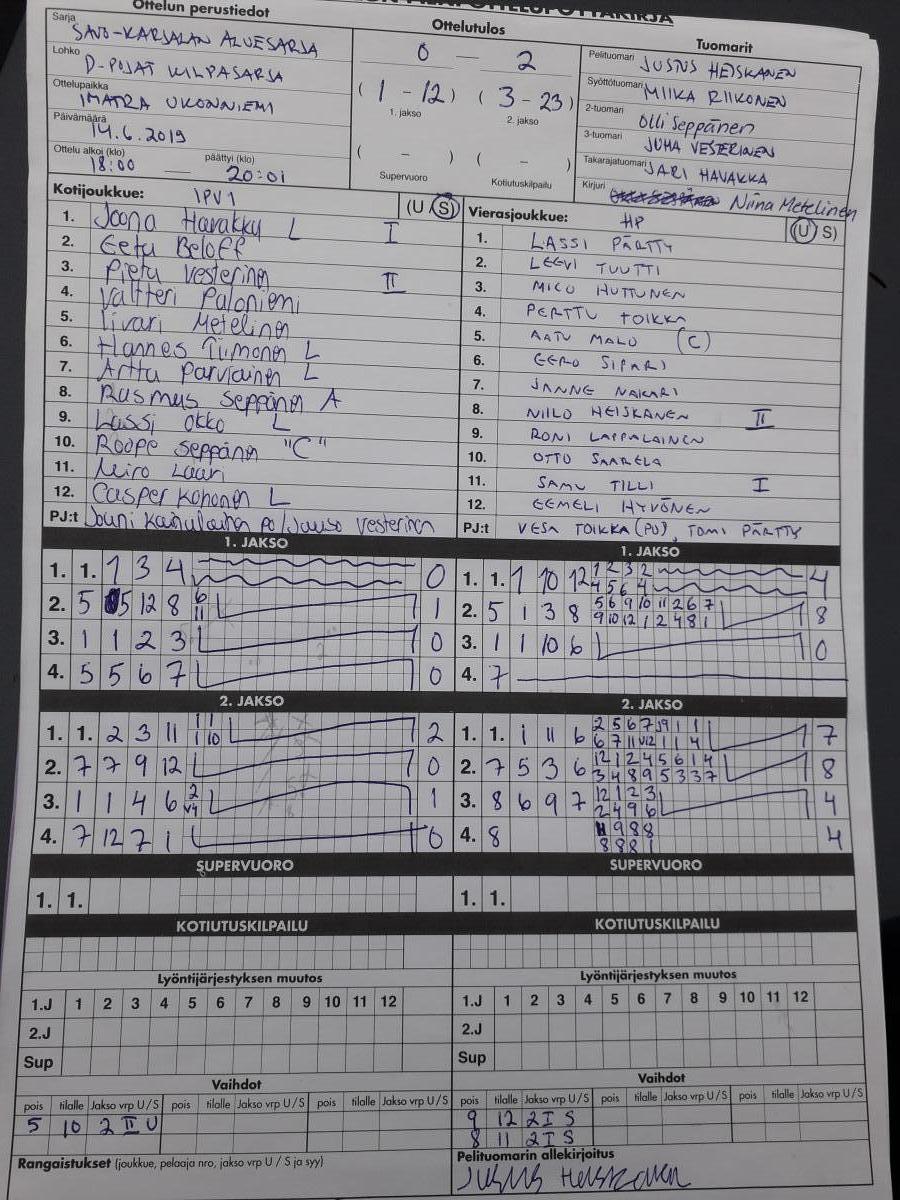 Ottelun perustiedot
Sarja
SAVO-KARJALAN ALUESARJA
Lohko
D-POJAT KILPASARJA
Ottelupaikka
IMATRA UKONNIEMI
Päivämäärä
14.6.2019
Ottelu alkoi (klo) päättyi (klo)
18:00 — 20:01
Ottelutulos
0 — 2
(1 - 12) (3 - 23)
1. jakso 2. jakso
( - ) ( - )
Supervuoro Kotiutuskilpailu
Tuomarit
Pelituomari JUSTUS HEISKANEN
Syöttötuomari MIIKA RIIKONEN
2-tuomari Olli Seppänen
3-tuomari JUHA VESTERINEN
Takarajatuomari JARI HAVAKKA
Kirjuri Niina Metelinen
Kotijoukkue: IPV1 (U S)
1. Joona Havakka L I
2. Eetu Beloff
3. Pietu Vesterinen II
4. Valtteri Paloniemi
5. Iivari Metelinen
6. Hannes Tiimonen L
7. Arttu Parviainen L
8. Rasmus Seppänen A
9. Lassi Okko L
10. Roope Seppänen "C"
11. Miro Laari
12. Casper Kohonen L
PJ:t Jouni Kainulainen PJ/Juuso Vesterinen
Vierasjoukkue: HP (U S)
1. LASSI PÄRTTY
2. LEEVI TUUTTI
3. MICO HUTTUNEN
4. PERTTU TOIKKA
5. AATU MALO (C)
6. EERO SIPARI
7. JANNE NAKARI
8. NIILO HEISKANEN II
9. RONI LAPPALAINEN
10. OTTO SAARELA
11. SAMU TILLI I
12. EEMELI HYVÖNEN
PJ:t VESA TOIKKA (PJ), TOMI PÄRTTY
1. JAKSO
1. 1. 1 3 4 0
2. 5 5 12 8 6 11 1
3. 1 1 2 3 0
4. 5 5 6 7 0
2. JAKSO
1. 1. 2 3 11 2
2. 7 7 9 12 0
3. 1 1 4 6 1
4. 7 12 7 1 0
SUPERVUORO
1. 1.
KOTIUTUSKILPAILU
Lyöntijärjestyksen muutos
1.J 1 2 3 4 5 6 7 8 9 10 11 12
2.J
Sup
Vaihdot
pois tilalle Jakso vrp U/S pois tilalle Jakso vrp U/S pois tilalle Jakso vrp U/S
5 10 2 II U
Rangaistukset (joukkue, pelaaja nro, jakso vrp U / S ja syy)
1. JAKSO
1. 1. 1 10 12 1 2 3 2 4
4 5 6 4
2. 5 1 3 8 5 6 9 10 11 2 6 7 8
9 10 12 1 2 4 8 1
3. 1 1 10 6 0
4. 7
2. JAKSO
1. 1. 1 11 6 7
2. 7 5 3 6 12 1 2 4 5 6 1 4 8
3 4 8 9 5 3 3 7
3. 8 6 9 7 12 1 2 3 4
2 4 9 6
4. 8 9 8 8 4
8 8 8 1
SUPERVUORO
1. 1.
KOTIUTUSKILPAILU
Lyöntijärjestyksen muutos
1.J 1 2 3 4 5 6 7 8 9 10 11 12
2.J
Sup
Vaihdot
pois tilalle Jakso vrp U/S pois tilalle Jakso vrp U/S pois tilalle Jakso vrp U/S
9 12 2 I S
8 11 2 I S
Pelituomarin allekirjoitus
Justus Heiskanen